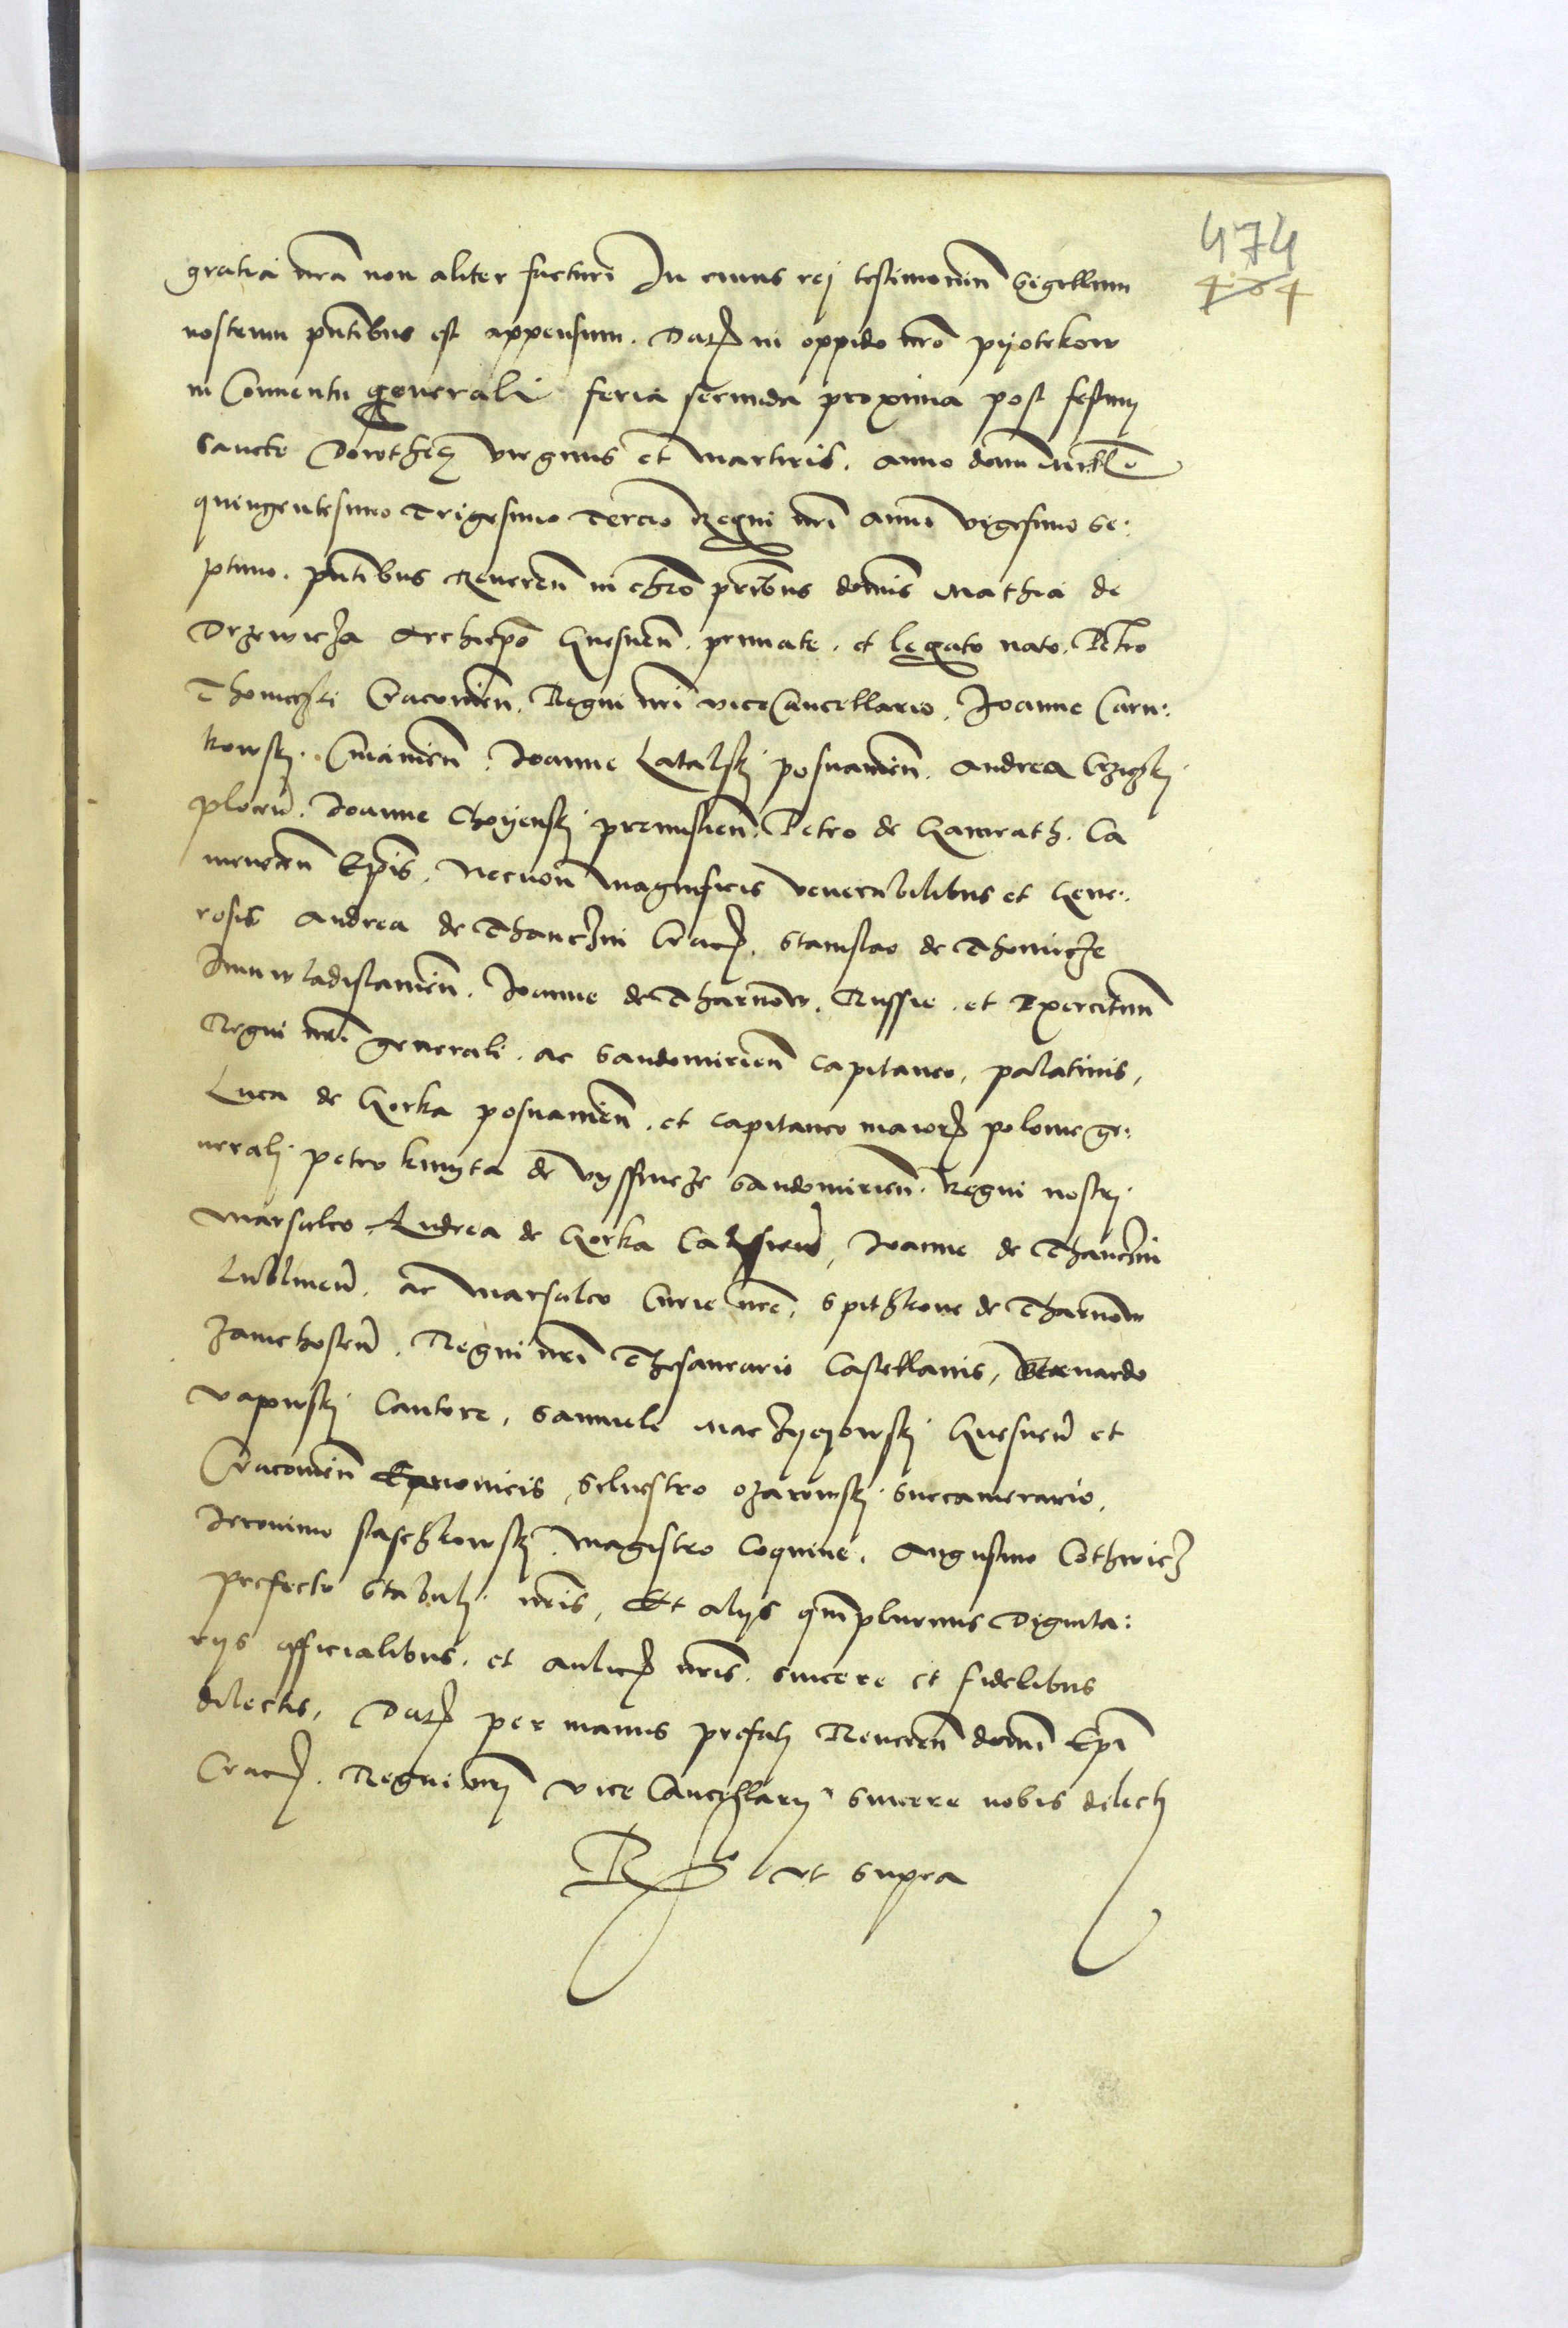 474
464
gratia nrã non aliter facturi In cuius rej testimoniũ Sigillum
nostrum pñtibus est appensum. Datũ in oppido nrõ pyotrkow
in Conuentu generali feria secunda proxima post festum
Sancte Dorothee virginis et Martiris. Anno domi Millõ
quingentesimo Trigesimo Tercio Regni nrĩ anni vigesimo Se:
ptimo. pñtibus Reuereñ in chrõ prĩbus domĩs Mathia de
Drzewicza Archiepõ Gnesneñ. primate. et legato nato. Petro
Thomiczki Cracouieñ. Regni nrĩ vice Cancellario. Joanne Carn:
kowskj. Cuiauieñ. Joanne Latalskj posnanieñ. Andrea Crziczkj
ploceñ. Joanne Choyenskj premislieñ. Petro de Gamrath. Ca
meneceñ Epĩs. Necnon Magnificis venerabilibus et Gene:
rosis Andrea de Thanczin Craco. Stanislao de Thomicze
Juniwladislauieñ. Joanne de Tharnow. Russie. et Exercituum
Regni nrĩ generali. ac Sandomirieñ Capitaneo, palatinis,
Luca de Gorka posnanieñ. et capitaneo maioris polonie ge:
neralj. petro kmyta de vyssnicze Sandomirieñ. Regni nostrj
Marsalco Andrea de Gorka Calisieñ, Joanne de Thanczin
Lublineñ. ac Marsalco Curie nrẽ, Spithkone de Tharnow
Zawichosteñ. Regni nrĩ Thesaurario Castellanis, Bernardo
vapowskj Cantore, Samuele Maczyeyowskj Gnesneñ et
Cracouieñ Canonicis, Siluestro ozarowskj Succamerario,
Jeronimo staschkowskj Magistro Coquine, Augustino Cothwicz
prefecto Stabulj nrĩs, Et alijs qm̃plurimis Dignita:
rijs officialibus. et aulicis nrĩs. sincere et fidelibus
dilectis, Datũ per manus prefatj Reuereñ domĩ Epĩ
Craco. Regni nrj vice Cancellarij sincere nobis dilectj
Rº ut supra